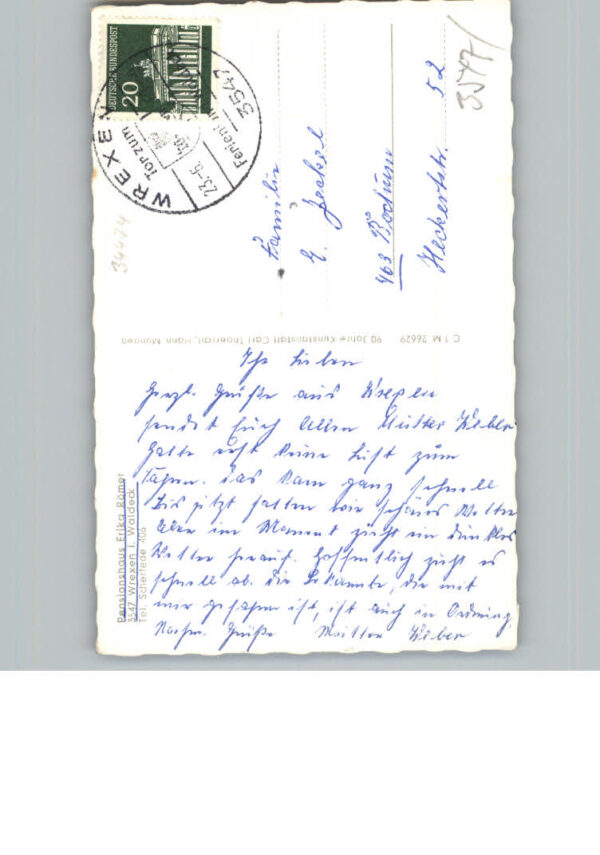 DEUTSCHE BUNDESPOST
20
WREXEN
3547
Tor zum
Ferien
23.-6.
3547
34474
Familie
E. Jeckel
463 Bochum
Heckertstr. 52
C T M 26629 90 Jahre Kunstanstalt Carl Thoericht, Hann Münden
Pensionshaus Erika Römer
3547 Wrexen i. Waldeck
Tel. Scherfede 406
Ihr Lieben
Herzl. Grüße aus Wrexen
sendet Euch Allen Mutter Weber
Hatte erst keine Lust zum
Fahren. das kam ganz schnell
Bis jetzt hatten wir schönes Wetter
Aber im Moment zieht ein dunkles
Wetter herauf. Hoffentlich zieht es
schnell ab. die Bekannte, die mit
mir gefahren ist, ist auch in Ordnung.
Nochm. Grüße Mutter Weber